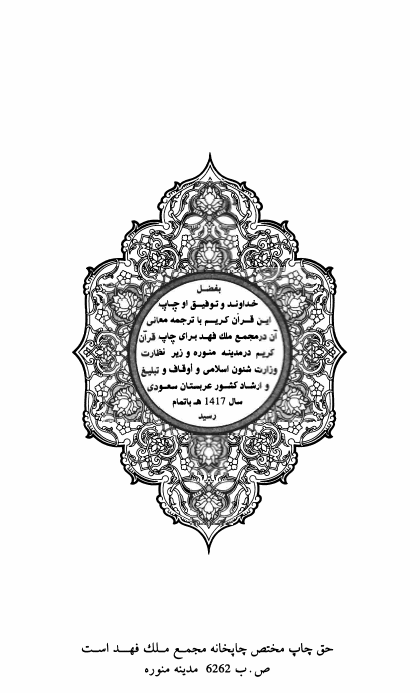 بفضل
خداوند و توفیق او چاپ
این قرآن کریم با ترجمه معانی
آن درمجمع ملك فهد برای چاپ قرآن
کریم درمدینه منوره و زیر نظارت
وزارت شئون اسلامی و أوقاف و تبلیغ
و ارشاد کشور عربستان سعودی
سال 1417 هـ باتمام
رسید
حق چاپ مختص چاپخانه مجمع ملك فهد است
ص . ب 6262 مدینه منوره